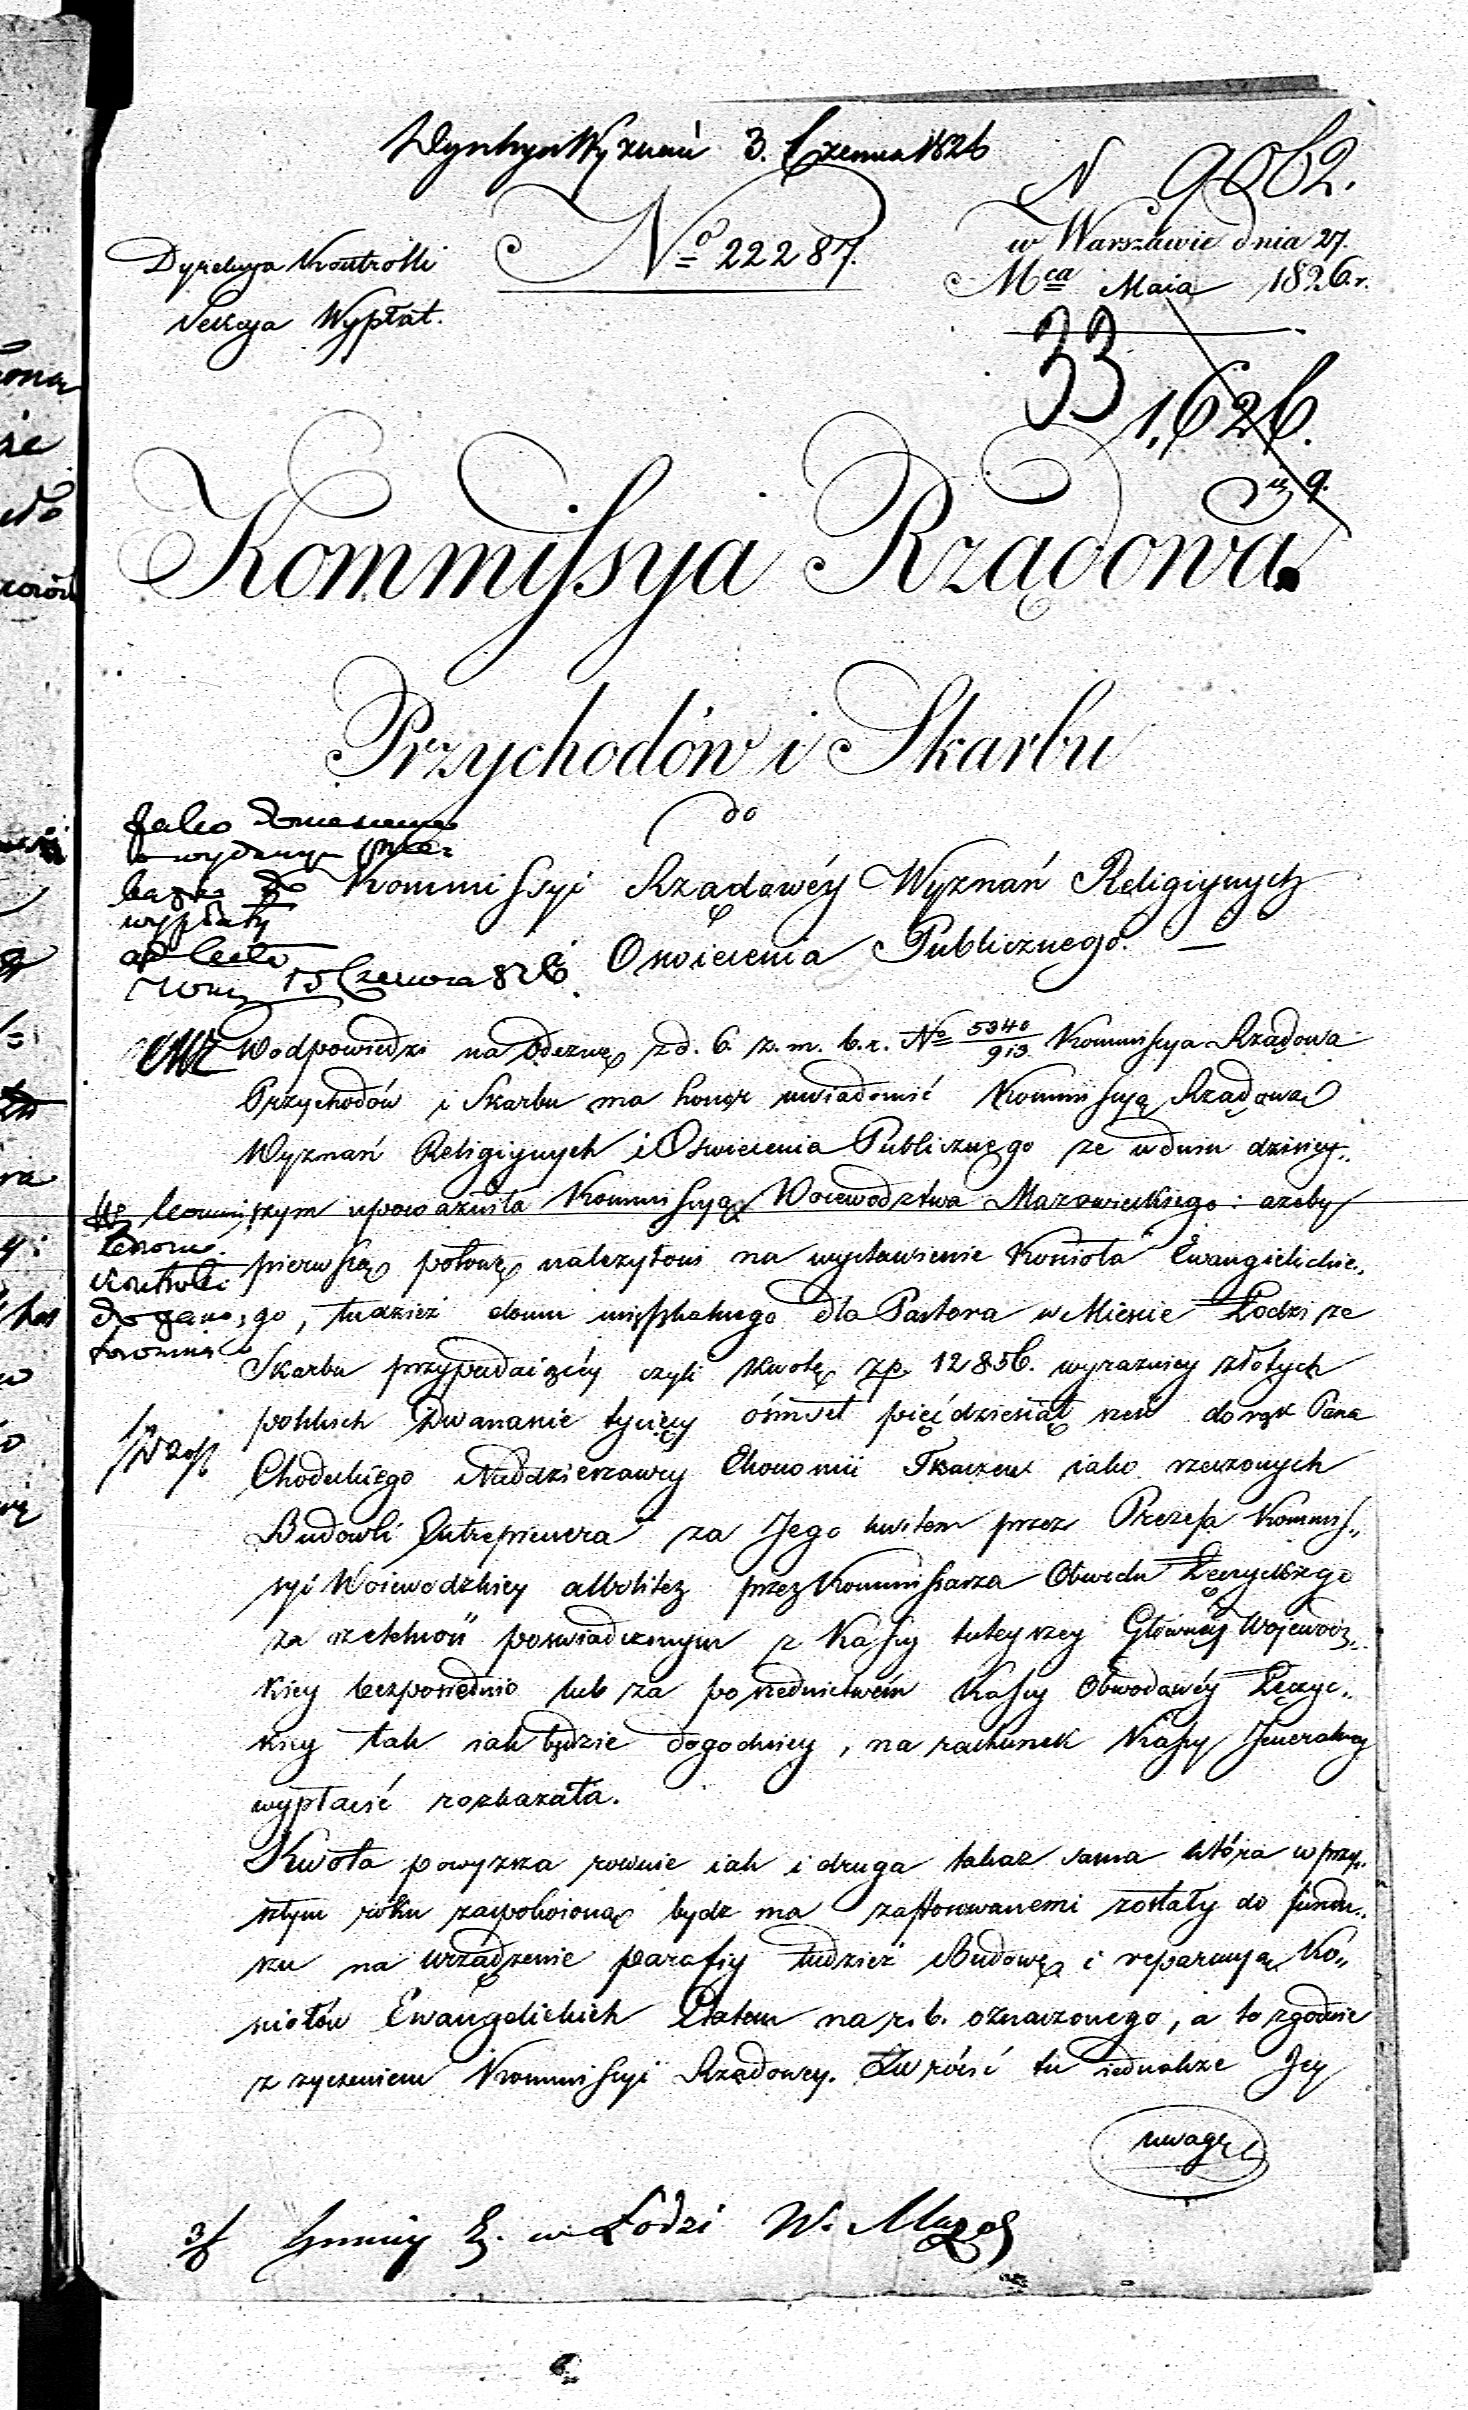 3. Czerwca 1826
N 9062.
Dyrekcyja Kontrolli
Sekcyja Wypłat.
No 22287.
w Warszawie dnia 27.
Mca Maia 1826. r.
33
1,626.
Kommissya Rządowa
Przychodów i Skarbu
do
Kommissyi Rządowéy Wyznań Religiynych
i Oswiecenia Publicznego. —
wypłaty
15 Czerwca 826.
W odpowiedzi na Odezwę z d. 6. z. m. b. r. No 5340/913 Kommissya Rządowa
Przychodów i Skarbu ma honor uwiadomić Kommissyją Rządową
Wyznań Religiynych i Oswiecenia Publicznego ze w dniu dzisiey„
szym upoważniła Kommissyją Woiewodztwa Mazowieckiego: azeby
pierwszą połowę należytosci na wystawienie Kościoła Ewangielickie„
go, tudzież domu mięszkalnego dla Pastora w Mieście Łodzi ze
Skarbu przypadaiącéy czyli kwotę zp. 12856. wyrazniey złotych
polskich Dwanascie tysięcy ośmset pięćdziesiąt sześć do rąk Pana
Naddzierzawcy Ekonomii iako rzeczonych
Budowli Entreprenera za Jego kwitem przez Prezesa Kommis„
syi Woiewodzkiey albolitez przez Kommissarza Obwodu Łęczyckiego
za rzetelność poswiadczonym z Kassy tuteyszey Główney Wojewodz„
kiey bezposrednio lub za posrednictwem Kassy Obwodowéy Łęczyc„
kiey tak iak będzie dogodniey, na rachunek Kassy Jeneralney
wypłacić rozkazała.
Kwota powyzsza rownie iak i druga takaz sama która w przy„
szłym roku zaspokoioną bydz ma zastosowanemi zostały do fundu„
szu na urządzenie parafiy tudzież Budowę i reparacyją Ko„
sciołów Ewangelickich Etatem na r. b. oznaczonego, a to zgodnie
z zyczeniem Kommissyi Rządowey. Zwrócić tu iednakze Jey
uwagę
Gminy E. w Łodzi W. Mazo